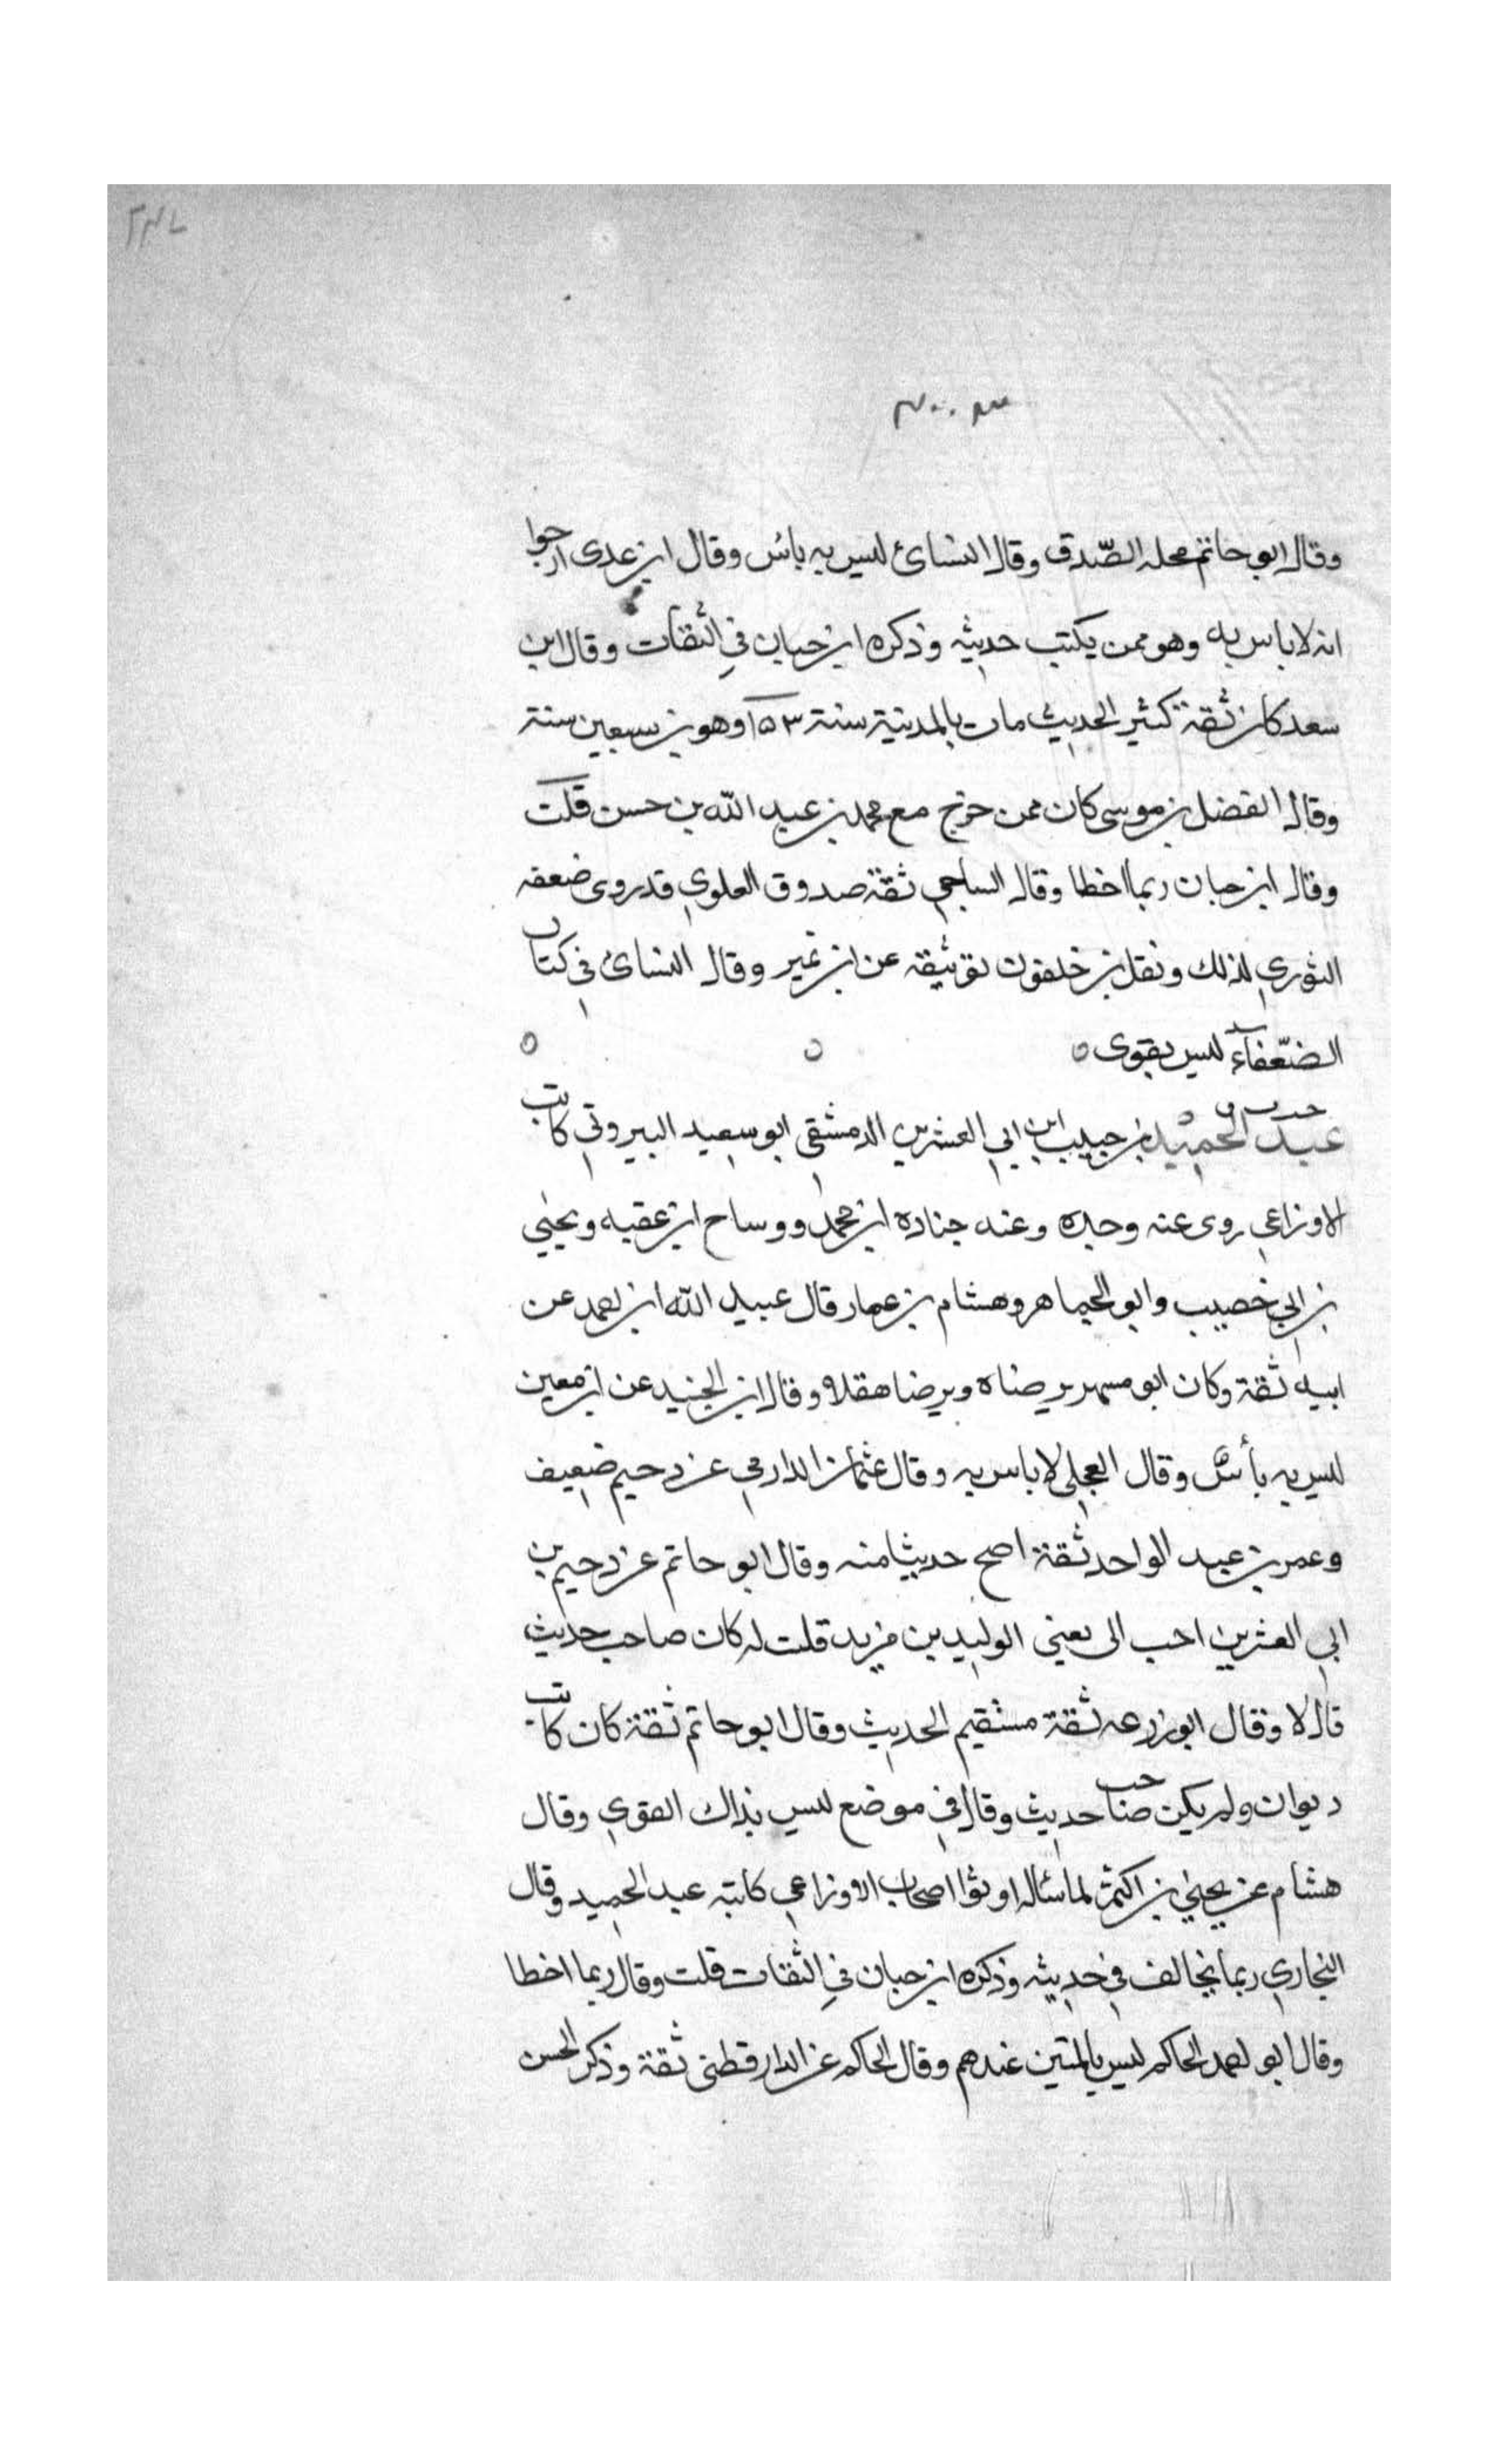 وقال ابو حاتم محله الصّدق وقال النسائ ليس به باس وقال ابن عدى ارجوا
انه لا باس به وهو ممن يكتب حديثه وذكره ابن حبان في الثقات وقال ابن
سعد كان ثقة كثير الحديث مات بالمدينة سنة ١٥٣ وهو بن سبعين سنة
وقال الفضل بن موسى كان ممن خرج مع محمد بن عبد الله بن حسن قلت
وقال ابن حبان ربما اخطا وقال الساجي ثقة صدوق العلوي قدروى ضعفه
الثوري لذلك ونقل بن خلفون توثيقه عن ابن نمير وقال النسائ في كتاب
الضّعفآء ليس بقوى
عبد الحميد بن حبيب ابن ابي العشرين الدمشقي ابو سعيد البيروتي كاتب
الاوزاعي روى عنه وحده وعنه جناده ابن محمد ووساح ابن عقبه ويحيى
بن ابي خصيب وابو الجماهر وهشام بن عمار قال عبيد الله ابن احمد عن
ابيه ثقة وكان ابو مسهر يرضاه ويرضا هقلا وقال ابن الجنيد عن ابن معين
ليس به بأس وقال العجلى لا باس به وقال عثمان الدارمي عن دحيم ضعيف
وعمر بن عبد الواحد ثقة اصح حديثا منه وقال ابو حاتم عن دحيم بن
ابي العشرين احب الى يعني الوليد بن مزيد قلت له كان صاحب حديث
قال لا وقال ابو زرعه ثقة مستقيم الحديث وقال ابو حاتم ثقة كان كاتب
ديوان ولم يكن صاحب حديث وقال في موضع ليس بذاك القوي وقال
هشام عن يحيى بن اكثم لما سئاله اوثوا اصحاب الاوزاعي كاتبه عبد الحميد وقال
البخاري ربما يخالف في حديثه وذكره ابن حبان في الثقات قلت وقال ربما اخطا
وقال ابو احمد الحاكم ليس بالمتين عندهم وقال الحاكم عن الدارقطنى ثقة وذكر الحسن